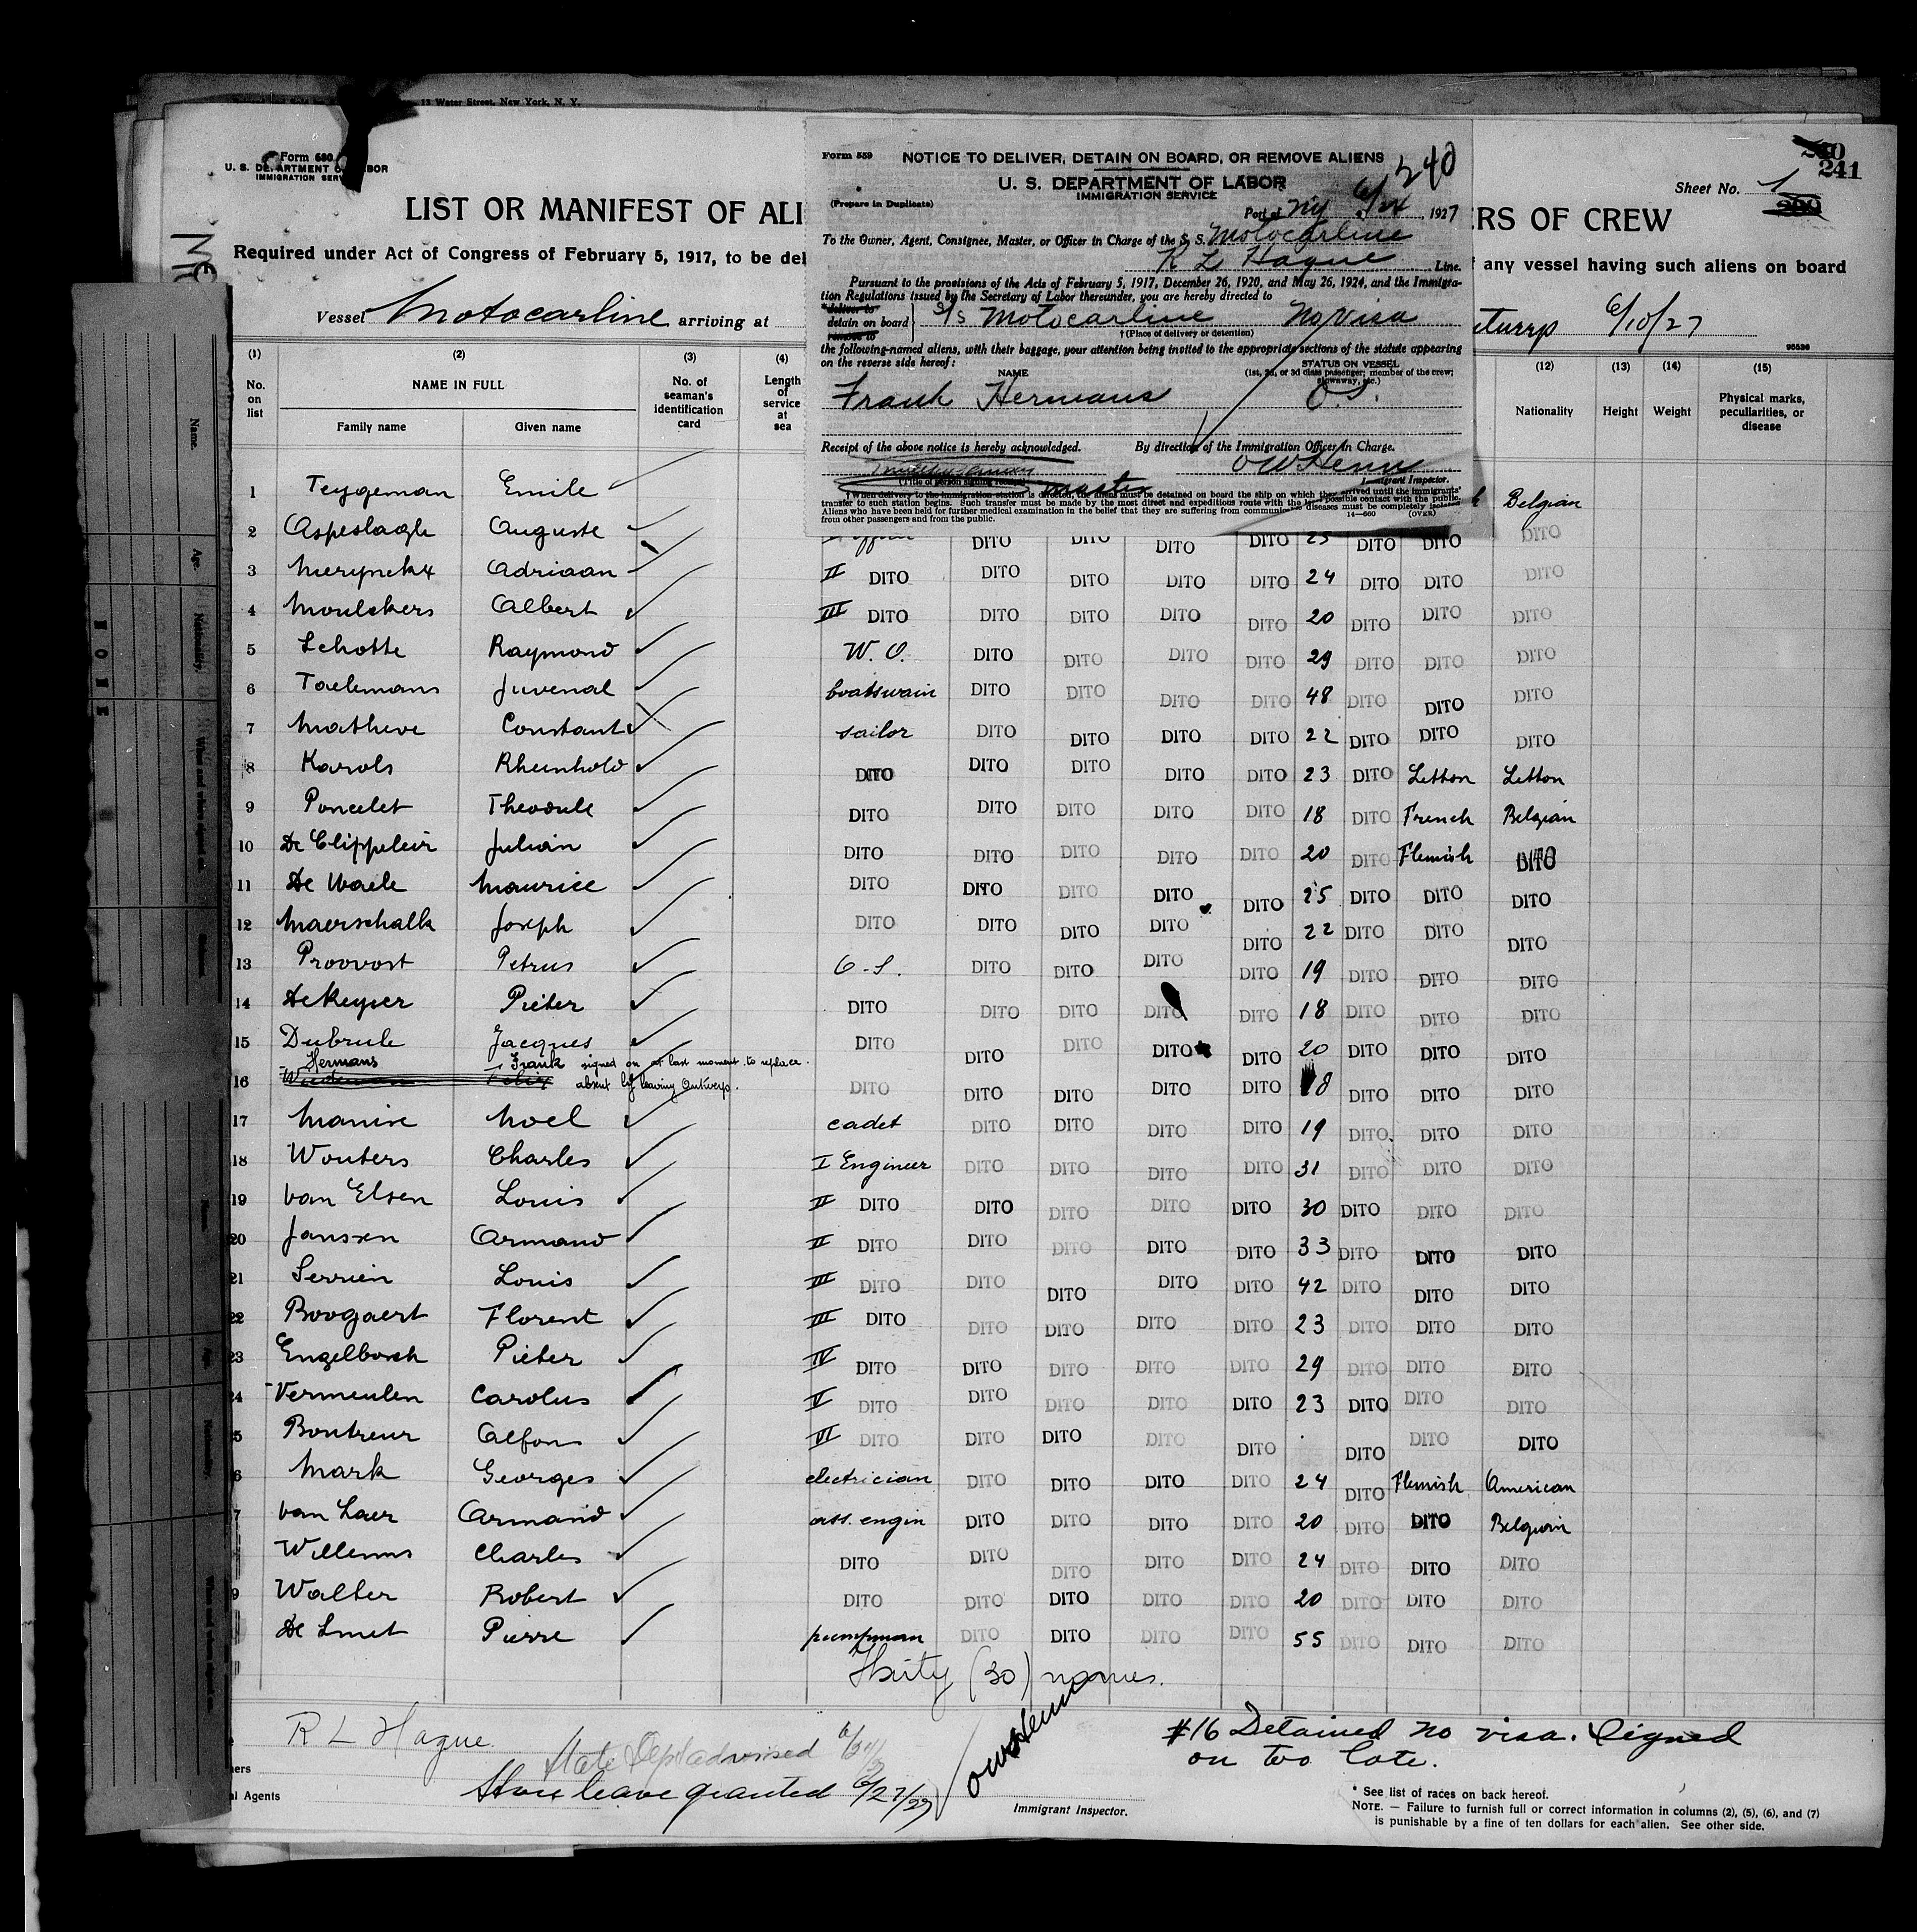 13 Water Street, New York, N. Y.
Form 680
U. S. DEPARTMENT OF LABOR
IMMIGRATION SERVICE
LIST OR MANIFEST OF ALI
Required under Act of Congress of February 5, 1917, to be del
Vessel Motocarline arriving at
Form 559 NOTICE TO DELIVER, DETAIN ON BOARD, OR REMOVE ALIENS 240
U. S. DEPARTMENT OF LABOR
IMMIGRATION SERVICE
(Prepare in Duplicate)
Port of NY 6/24, 1927
To the Owner, Agent, Consignee, Master, or Officer in Charge of the S. S. Motocarline
R L Hague Line.
Pursuant to the provisions of the Acts of February 5, 1917, December 26, 1920, and May 26, 1924, and the Immigra-
tion Regulations issued by the Secretary of Labor thereunder, you are hereby directed to
*deliver to
detain on board S/S Motocarline No visa
remove to
†(Place of delivery or detention)
the following-named aliens, with their baggage, your attention being invited to the appropriate sections of the statute appearing
on the reverse side hereof:
NAME STATUS ON VESSEL
(1st, 2d, or 3d class passenger; member of the crew;
stowaway, etc.)
Frank Hermans O.S.
Receipt of the above notice is hereby acknowledged. By direction of the Immigration Officer in Charge.
OWHenn
(Title of person signing receipt) master Immigrant Inspector.
†When delivery to the immigration station is directed, the aliens must be detained on board the ship on which they arrived until the immigrants'
transfer to such station begins. Such transfer must be made by the most direct and expeditious route with the least possible contact with the public.
Aliens who have been held for further medical examination in the belief that they are suffering from communicable diseases must be completely isolated
from other passengers and from the public.
14—660 (OVER)
240
241
Sheet No. 1
200
ERS OF CREW
any vessel having such aliens on board
6/10/27
95536
(1) (2) (3) (4) (12) (13) (14) (15)
No. on list NAME IN FULL No. of seaman's identification card Length of service at sea Nationality Height Weight Physical marks, peculiarities, or disease
Family name Given name
1 Teygeman Emile Belgian
2 Aspeslagh Auguste DITO DITO DITO DITO 25 DITO DITO DITO
3 Merynckx Adriaan II DITO DITO DITO DITO DITO 24 DITO DITO DITO
4 Moulckers Albert III DITO DITO DITO DITO DITO 20 DITO DITO DITO
5 Schotte Raymond W. O. DITO DITO DITO DITO 29 DITO DITO DITO
6 Taelemans Juvenal boatswain DITO DITO DITO DITO 48 DITO DITO DITO
7 Matheve Constant sailor DITO DITO DITO DITO 22 DITO DITO DITO
8 Karols Rheinhold DITO DITO DITO DITO DITO 23 DITO Letton Letton
9 Poncelet Theodule DITO DITO DITO DITO DITO 18 DITO French Belgian
10 De Clippeleir Julian DITO DITO DITO DITO DITO 20 DITO Flemish DITO
11 De Waele Maurice DITO DITO DITO DITO DITO 25 DITO DITO DITO
12 Maerschalk Joseph DITO DITO DITO DITO DITO 22 DITO DITO DITO
13 Proovost Petrus O-S. DITO DITO DITO DITO 19 DITO DITO DITO
14 De Keyser Pieter DITO DITO DITO DITO DITO 18 DITO DITO DITO
15 Dubrule Jacques DITO DITO DITO DITO DITO 20 DITO DITO DITO
Hermans Frank signed on at last moment to replace
16 absent by leaving Antwerp. DITO DITO DITO DITO DITO 18 DITO DITO DITO
17 Manise Noel cadet DITO DITO DITO DITO 19 DITO DITO DITO
18 Wouters Charles I Engineer DITO DITO DITO DITO 31 DITO DITO DITO
19 van Elsen Louis II DITO DITO DITO DITO DITO 30 DITO DITO DITO
20 Janssen Armand II DITO DITO DITO DITO DITO 33 DITO DITO DITO
21 Serrien Louis III DITO DITO DITO DITO DITO 42 DITO DITO DITO
22 Boogaert Florent III DITO DITO DITO DITO DITO 23 DITO DITO DITO
23 Engelborch Pieter IV DITO DITO DITO DITO DITO 29 DITO DITO DITO
24 Vermeulen Carolus V DITO DITO DITO DITO DITO 23 DITO DITO DITO
5 Boutreur Alfons VI DITO DITO DITO DITO DITO DITO DITO DITO
6 Mark Georges electrician DITO DITO DITO DITO 24 DITO Flemish American
7 van Laer Armand ass. engin DITO DITO DITO DITO 20 DITO DITO Belgian
Willems Charles DITO DITO DITO DITO DITO 24 DITO DITO DITO
9 Walter Robert DITO DITO DITO DITO DITO 20 DITO DITO DITO
De Smet Pierre pumpman DITO DITO DITO DITO 55 DITO DITO DITO
Thirty (30) names.
R L Hague
State Dept advised 6/24/27
Shore leave granted 6/27/27
OWHenn
Immigrant Inspector.
#16 Detained no visa. Signed
on too late.
ners
l Agents
* See list of races on back hereof.
NOTE. — Failure to furnish full or correct information in columns (2), (5), (6), and (7)
is punishable by a fine of ten dollars for each alien. See other side.
Name.
Age.
Nationality.